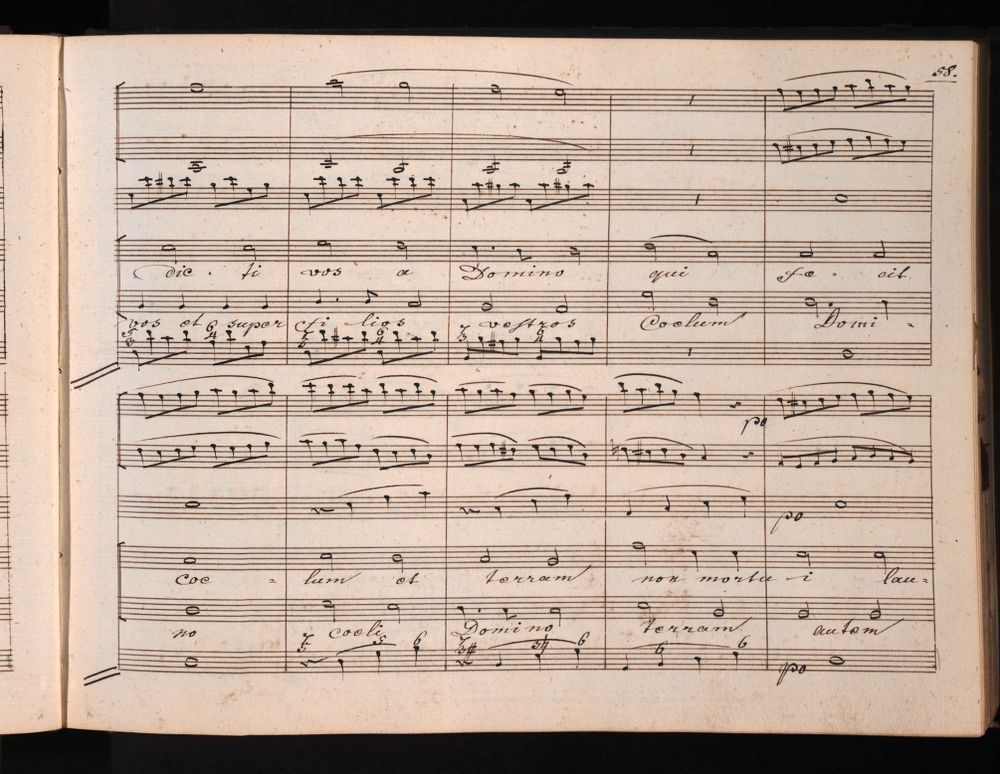 58.
dic . ti vos a Domino qui fe . cit
vos et super fi lios vestros Coelum Domi -
po
po
coe - lum et terram non mortu - i lau -
no coeli Domino terram autem
po